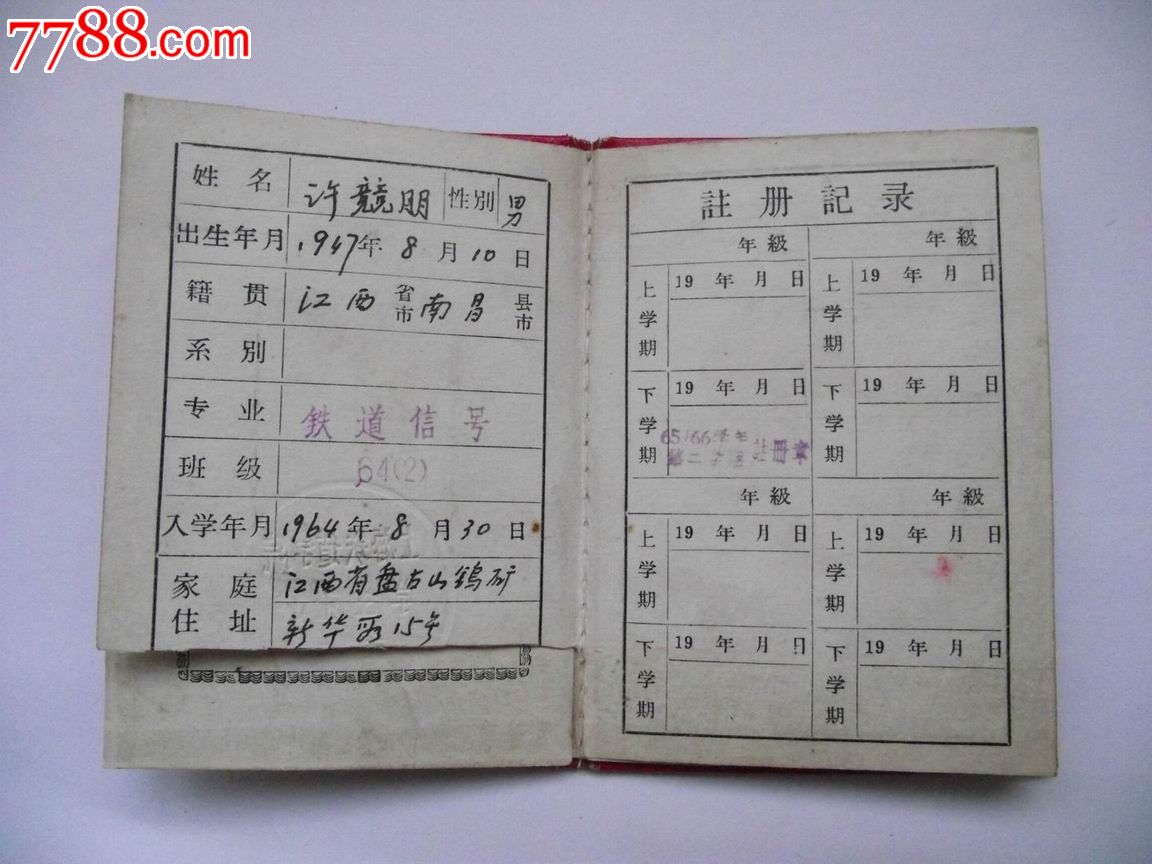 7788.com
姓名 许競朋 性別 男
出生年月 1947年8月10日
籍贯 江西省市南昌县市
系別
专业 鉄道信号
班級 64(2)
入学年月 1964年8月30日
家庭住址 江西省盘古山鎢矿
新华
15号
註册記录
年級 年級
上学期 19 年 月 日 上学期 19 年 月 日
下学期 19 年 月 日 下学期 19 年 月 日
65/66学年
第二学期註册章
年級 年級
上学期 19 年 月 日 上学期 19 年 月 日
下学期 19 年 月 日 下学期 19 年 月 日